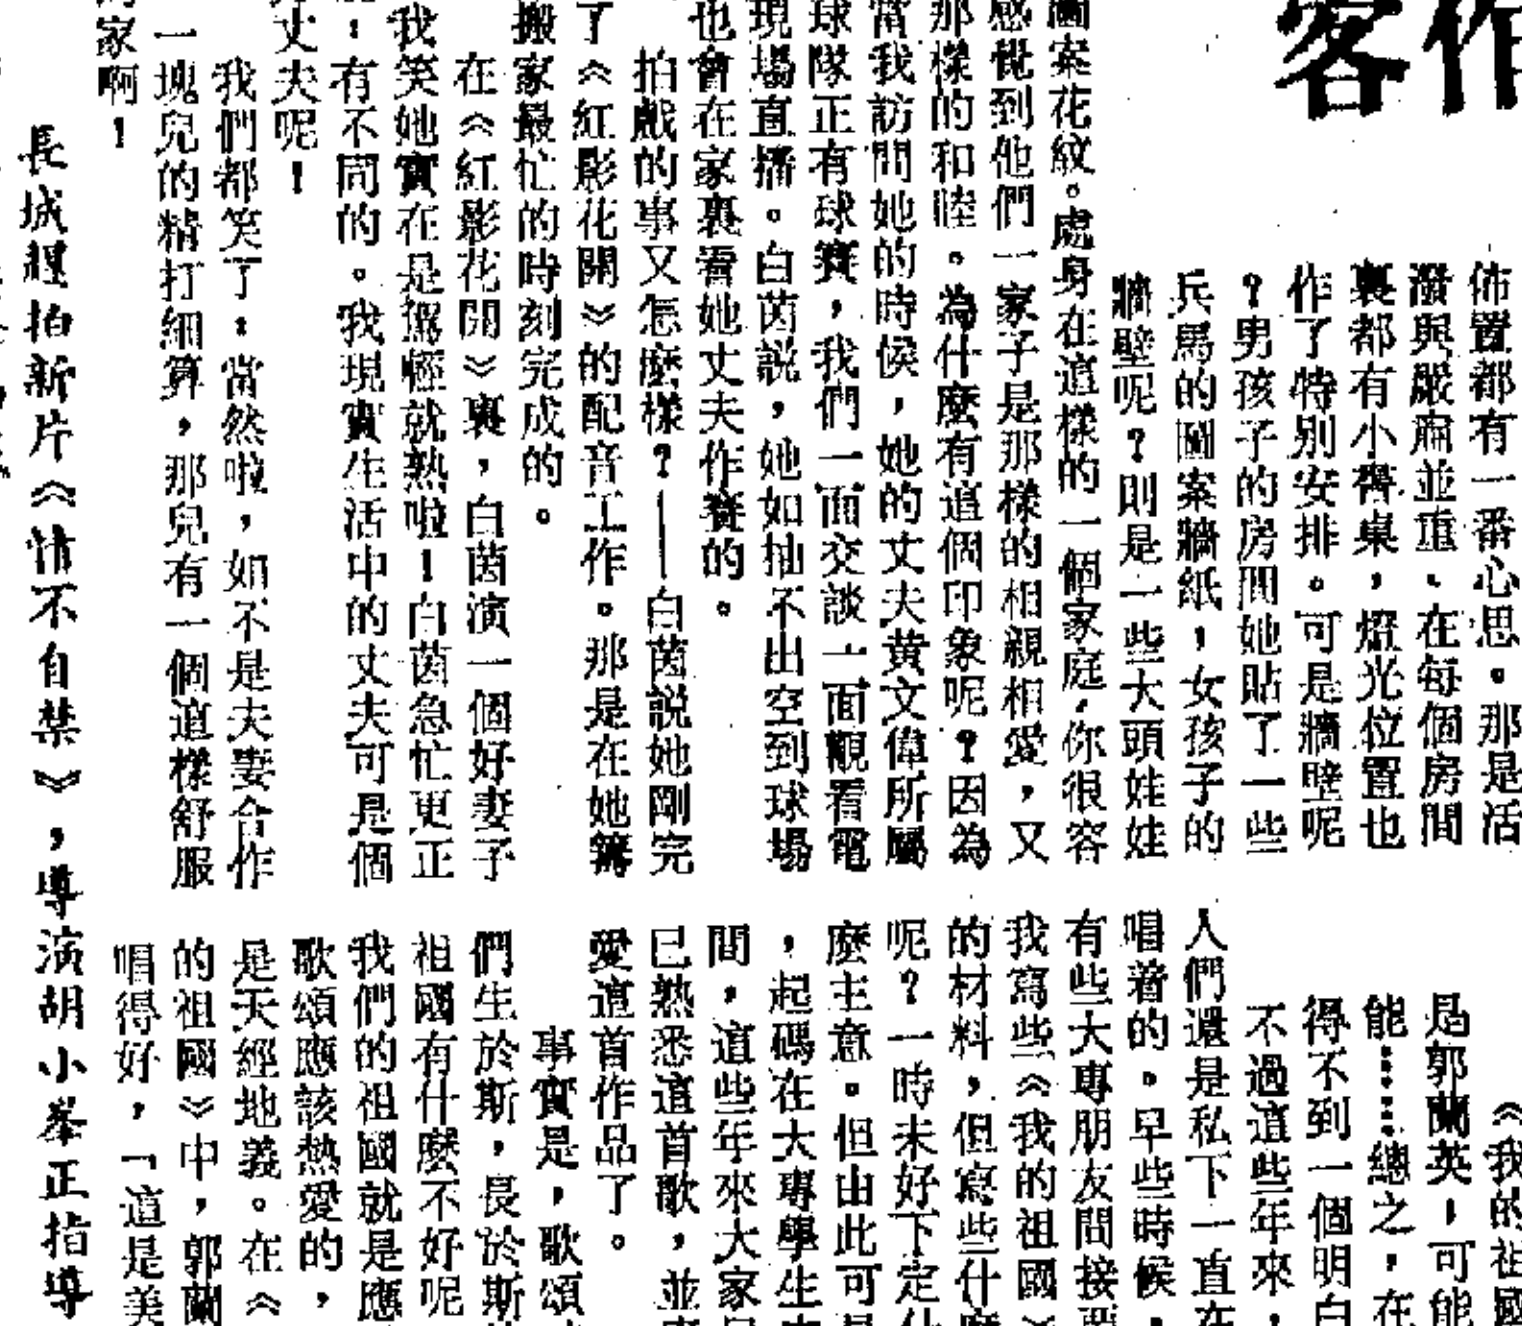 作客
佈置都有一番心思。那是活
潑與嚴肅並重。在每個房間
裏都有小書桌，燈光位置也
作了特別安排。可是牆壁呢
？男孩子的房間她貼了一些
兵馬的圖案牆紙，女孩子的
牆壁呢？則是一些大頭娃娃
圖案花紋。處身在這樣的一個家庭，你很容
感覺到他們一家子是那樣的相親相愛，又
那樣的和睦。為什麼有這個印象呢？因為
當我訪問她的時候，她的丈夫黄文偉所屬
球隊正有球賽，我們一面交談一面觀看電
現場直播。白茵説，她如抽不出空到球場
也會在家裏看她丈夫作賽的。
拍戲的事又怎麼樣？——白茵説她剛完
了《紅影花開》的配音工作。那是在她籌
搬家最忙的時刻完成的。
在《紅影花開》裏，白茵演一個好妻子
我笑她實在是駕輕就熟啦！白茵急忙更正
：有不同的。我現實生活中的丈夫可是個
丈夫呢！
我們都笑了：當然啦，如不是夫妻合作
一塊兒的精打細算，那兒有一個這樣舒服
家啊！
長城經拍新片《情不自禁》，導演胡小峯正指導
《我的祖國
是郭蘭英，可能
能……總之，在
得不到一個明白
不過這些年來，
人們還是私下一直在
唱着的。早些時候，
有些大專朋友問接要
我寫些《我的祖國》
的材料，但寫些什麼
呢？一時未好下定什
麼主意。但由此可見
，起碼在大專學生中
間，這些年來大家早
已熟悉這首歌，並
愛這首作品了。
事實是，歌頌
們生於斯，長於斯
祖國有什麼不好呢
我們的祖國就是應
歌頌應該熱愛的，
是天經地義。在《
的祖國》中，郭蘭
唱得好，「這是美